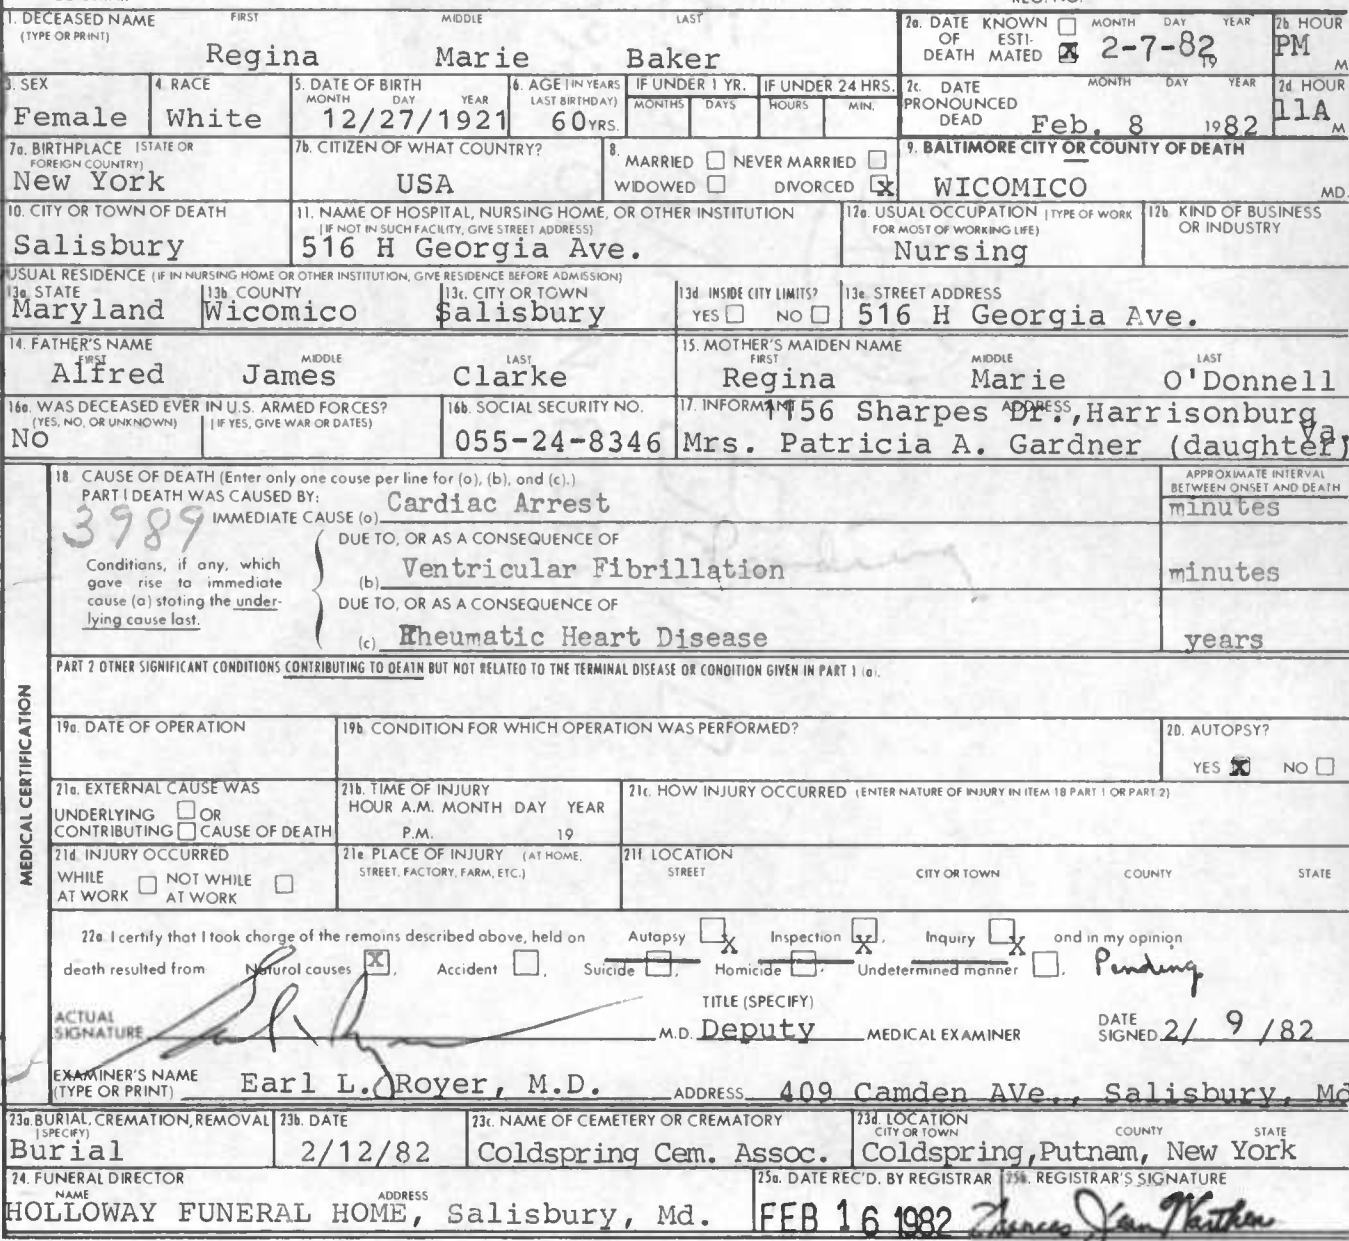 1. DECEASED NAME FIRST MIDDLE LAST
(TYPE OR PRINT)
Regina Marie Baker
2a. DATE KNOWN ☐ MONTH DAY YEAR
OF ESTI-
DEATH MATED ☒ 2-7-82 19
2b. HOUR
PM M
3. SEX
Female
4. RACE
White
5. DATE OF BIRTH
MONTH DAY YEAR
12/27/1921
6. AGE (IN YEARS
LAST BIRTHDAY)
60 YRS.
IF UNDER 1 YR.
MONTHS DAYS
IF UNDER 24 HRS.
HOURS MIN.
2c. DATE MONTH DAY YEAR
PRONOUNCED
DEAD Feb. 8 1982
2d HOUR
11A M
7a. BIRTHPLACE (STATE OR
FOREIGN COUNTRY)
New York
7b. CITIZEN OF WHAT COUNTRY?
USA
8.
MARRIED ☐ NEVER MARRIED ☐
WIDOWED ☐ DIVORCED ☒
9. BALTIMORE CITY OR COUNTY OF DEATH
WICOMICO MD.
10. CITY OR TOWN OF DEATH
Salisbury
11. NAME OF HOSPITAL, NURSING HOME, OR OTHER INSTITUTION
(IF NOT IN SUCH FACILITY, GIVE STREET ADDRESS)
516 H Georgia Ave.
12a. USUAL OCCUPATION (TYPE OF WORK
FOR MOST OF WORKING LIFE)
Nursing
12b. KIND OF BUSINESS
OR INDUSTRY
USUAL RESIDENCE (IF IN NURSING HOME OR OTHER INSTITUTION, GIVE RESIDENCE BEFORE ADMISSION)
13a. STATE
Maryland
13b. COUNTY
Wicomico
13c. CITY OR TOWN
Salisbury
13d. INSIDE CITY LIMITS?
YES ☐ NO ☐
13e. STREET ADDRESS
516 H Georgia Ave.
14. FATHER'S NAME
FIRST MIDDLE LAST
Alfred James Clarke
15. MOTHER'S MAIDEN NAME
FIRST MIDDLE LAST
Regina Marie O'Donnell
16a. WAS DECEASED EVER IN U.S. ARMED FORCES?
(YES, NO, OR UNKNOWN) (IF YES, GIVE WAR OR DATES)
No
16b. SOCIAL SECURITY NO.
055-24-8346
17. INFORMANT ADDRESS
1156 Sharpes Dr., Harrisonburg Va.
Mrs. Patricia A. Gardner (daughter)
MEDICAL CERTIFICATION
18. CAUSE OF DEATH (Enter only one cause per line for (a), (b), and (c).)
APPROXIMATE INTERVAL
BETWEEN ONSET AND DEATH
PART I DEATH WAS CAUSED BY:
3989
IMMEDIATE CAUSE (a) Cardiac Arrest minutes
DUE TO, OR AS A CONSEQUENCE OF
Conditions, if any, which
gave rise to immediate
cause (a) stating the under-
lying cause last.
(b) Ventricular Fibrillation minutes
DUE TO, OR AS A CONSEQUENCE OF
(c) Rheumatic Heart Disease years
PART 2 OTHER SIGNIFICANT CONDITIONS CONTRIBUTING TO DEATH BUT NOT RELATED TO THE TERMINAL DISEASE OR CONDITION GIVEN IN PART 1 (a).
19a. DATE OF OPERATION
19b. CONDITION FOR WHICH OPERATION WAS PERFORMED?
20. AUTOPSY?
YES ☒ NO ☐
21a. EXTERNAL CAUSE WAS
UNDERLYING ☐ OR
CONTRIBUTING ☐ CAUSE OF DEATH
21b. TIME OF INJURY
HOUR A.M. MONTH DAY YEAR
P.M. 19
21c. HOW INJURY OCCURRED (ENTER NATURE OF INJURY IN ITEM 18 PART 1 OR PART 2)
21d. INJURY OCCURRED
WHILE ☐ NOT WHILE ☐
AT WORK AT WORK
21e PLACE OF INJURY (AT HOME,
STREET, FACTORY, FARM, ETC.)
21f. LOCATION
STREET CITY OR TOWN COUNTY STATE
22a. I certify that I took charge of the remains described above, held on Autopsy ☒ Inspection ☒, Inquiry ☒ and in my opinion
death resulted from Natural causes ☒, Accident ☐, Suicide ☐, Homicide ☐, Undetermined manner ☐, Pending
TITLE (SPECIFY)
ACTUAL
SIGNATURE M.D. Deputy MEDICAL EXAMINER
DATE
SIGNED 2/ 9 /82
EXAMINER'S NAME
(TYPE OR PRINT) Earl L. Royer, M.D. ADDRESS 409 Camden AVe., Salisbury, Md
23a. BURIAL, CREMATION, REMOVAL
(SPECIFY)
Burial
23b. DATE
2/12/82
23c. NAME OF CEMETERY OR CREMATORY
Coldspring Cem. Assoc.
23d. LOCATION
CITY OR TOWN COUNTY STATE
Coldspring, Putnam, New York
24. FUNERAL DIRECTOR
NAME ADDRESS
HOLLOWAY FUNERAL HOME, Salisbury, Md.
25a. DATE REC'D. BY REGISTRAR
FEB 16 1982
25b. REGISTRAR'S SIGNATURE
Frances Jean Warthen